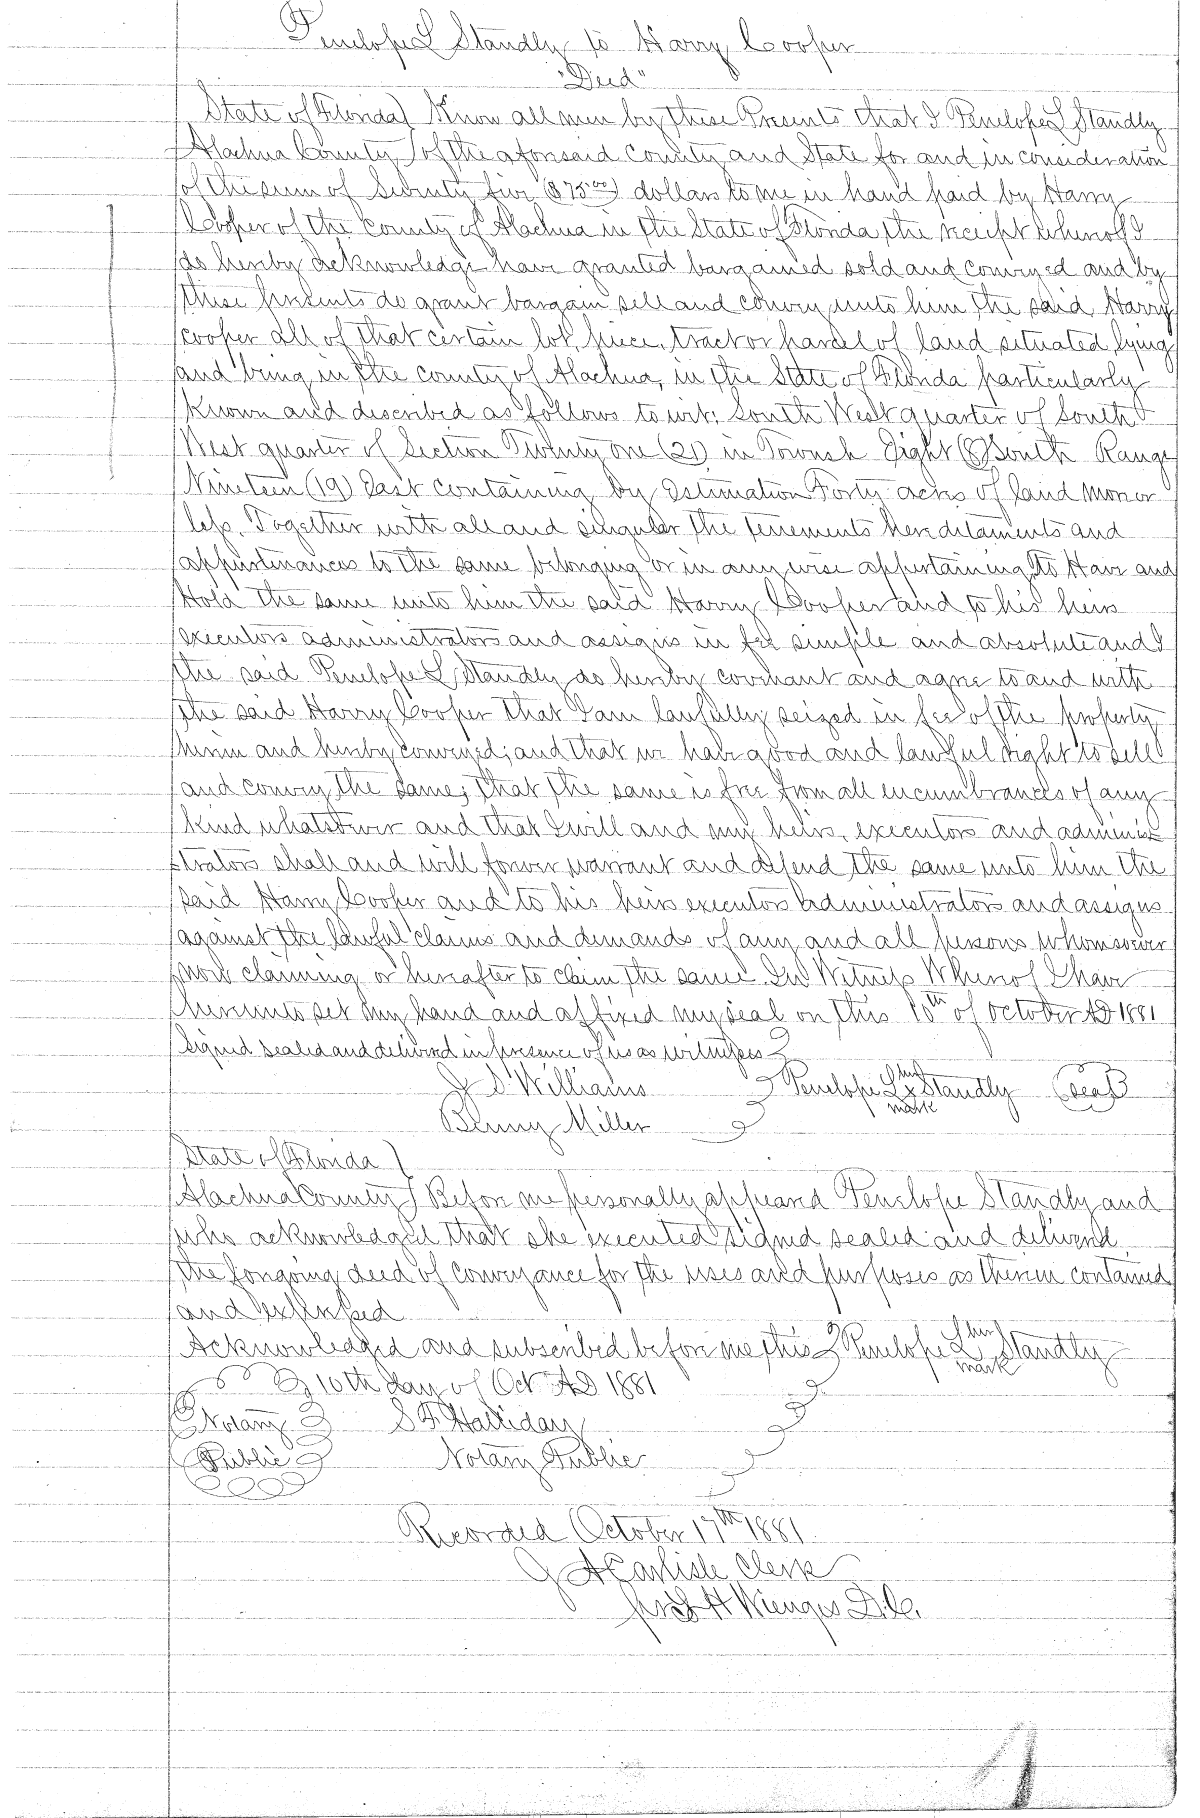 Penelope L Standly to Harry Cooper
"Deed"
State of Florida } Know all men by these Presents that I Penelope L Standly
Alachua County } of the aforesaid county and State for and in consideration
of the sum of Seventy five ($75 00) dollars to me in hand paid by Harry
Cooper of the county of Alachua in the State of Florida the receipt whereof I
do hereby acknowledge have granted bargained sold and conveyed and by
these presents do grant bargain sell and convey unto him the said Harry
cooper all of that certain lot, piece, tract or parcel of land situated lying
and being in the county of Alachua, in the State of Florida particularly
Known and described as follows to wit: South West quarter of South
West quarter of Section Twenty one (21) in Townsh Eight (8) South Range
Nineteen (19) East containing by Estimation Forty acres of land more or
less. Together with all and singular the tenements hereditaments and
appurtenances to the same belonging or in any wise appertaining To Have and
Hold the same unto him the said Harry Cooper and to his heirs
executors administrators and assigns in fee simple and absolute and I
the said Penelope L Standly do hereby covenant and agree to and with
the said Harry Cooper that I am lawfully seized in fee of the property
herein and hereby conveyed; and that we have good and lawful right to sell
and convey the same; that the same is free from all encumbrances of any
kind whatsoever and that I will and my heirs, executors and adminis
trators shall and will forever warrant and defend the same unto him the
said Harry Cooper and to his heirs executors administrators and assigns
against the lawful claims and demands of any and all persons whomsoever
now claiming or hereafter to claim the same. In Witness Whereof I have
hereunto set my hand and affixed my seal on this 10th of October AD 1881
Signed sealed and delivered in presence of us as witnesses }
J S Williams } Penelope L her x mark Standly (seal)
Benny Miller }
State of Florida }
Alachua County } Before me personally appeared Penelope Standly and
who acknowledged that she executed signed sealed and delivered
the foregoing deed of conveyance for the uses and purposes as therein contained
and expressed
Acknowledged and subscribed before me this } Penelope L her mark Standly
10th day of Oct AD 1881
Notary S F Halliday
Public Notary Public
Recorded October 17th 1881
J A Carlisle Clerk
H Wienges D.C.